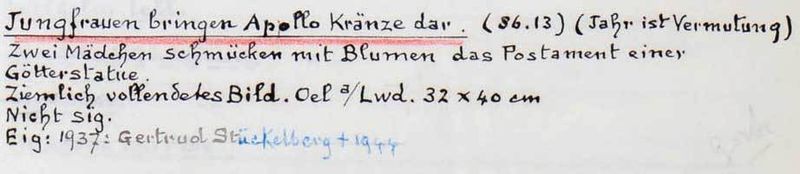 Jungfrauen bringen Apollo Kränze dar. (86.13) (Jahr ist Vermutung)
Zwei Mädchen schmücken mit Blumen das Postament einer
Götterstatue.
Ziemlich vollendetes Bild. Oel a/Lwd. 32 x 40 cm
Nicht sig.
Eig: 1937: Gertrud Stückelberg + 1944